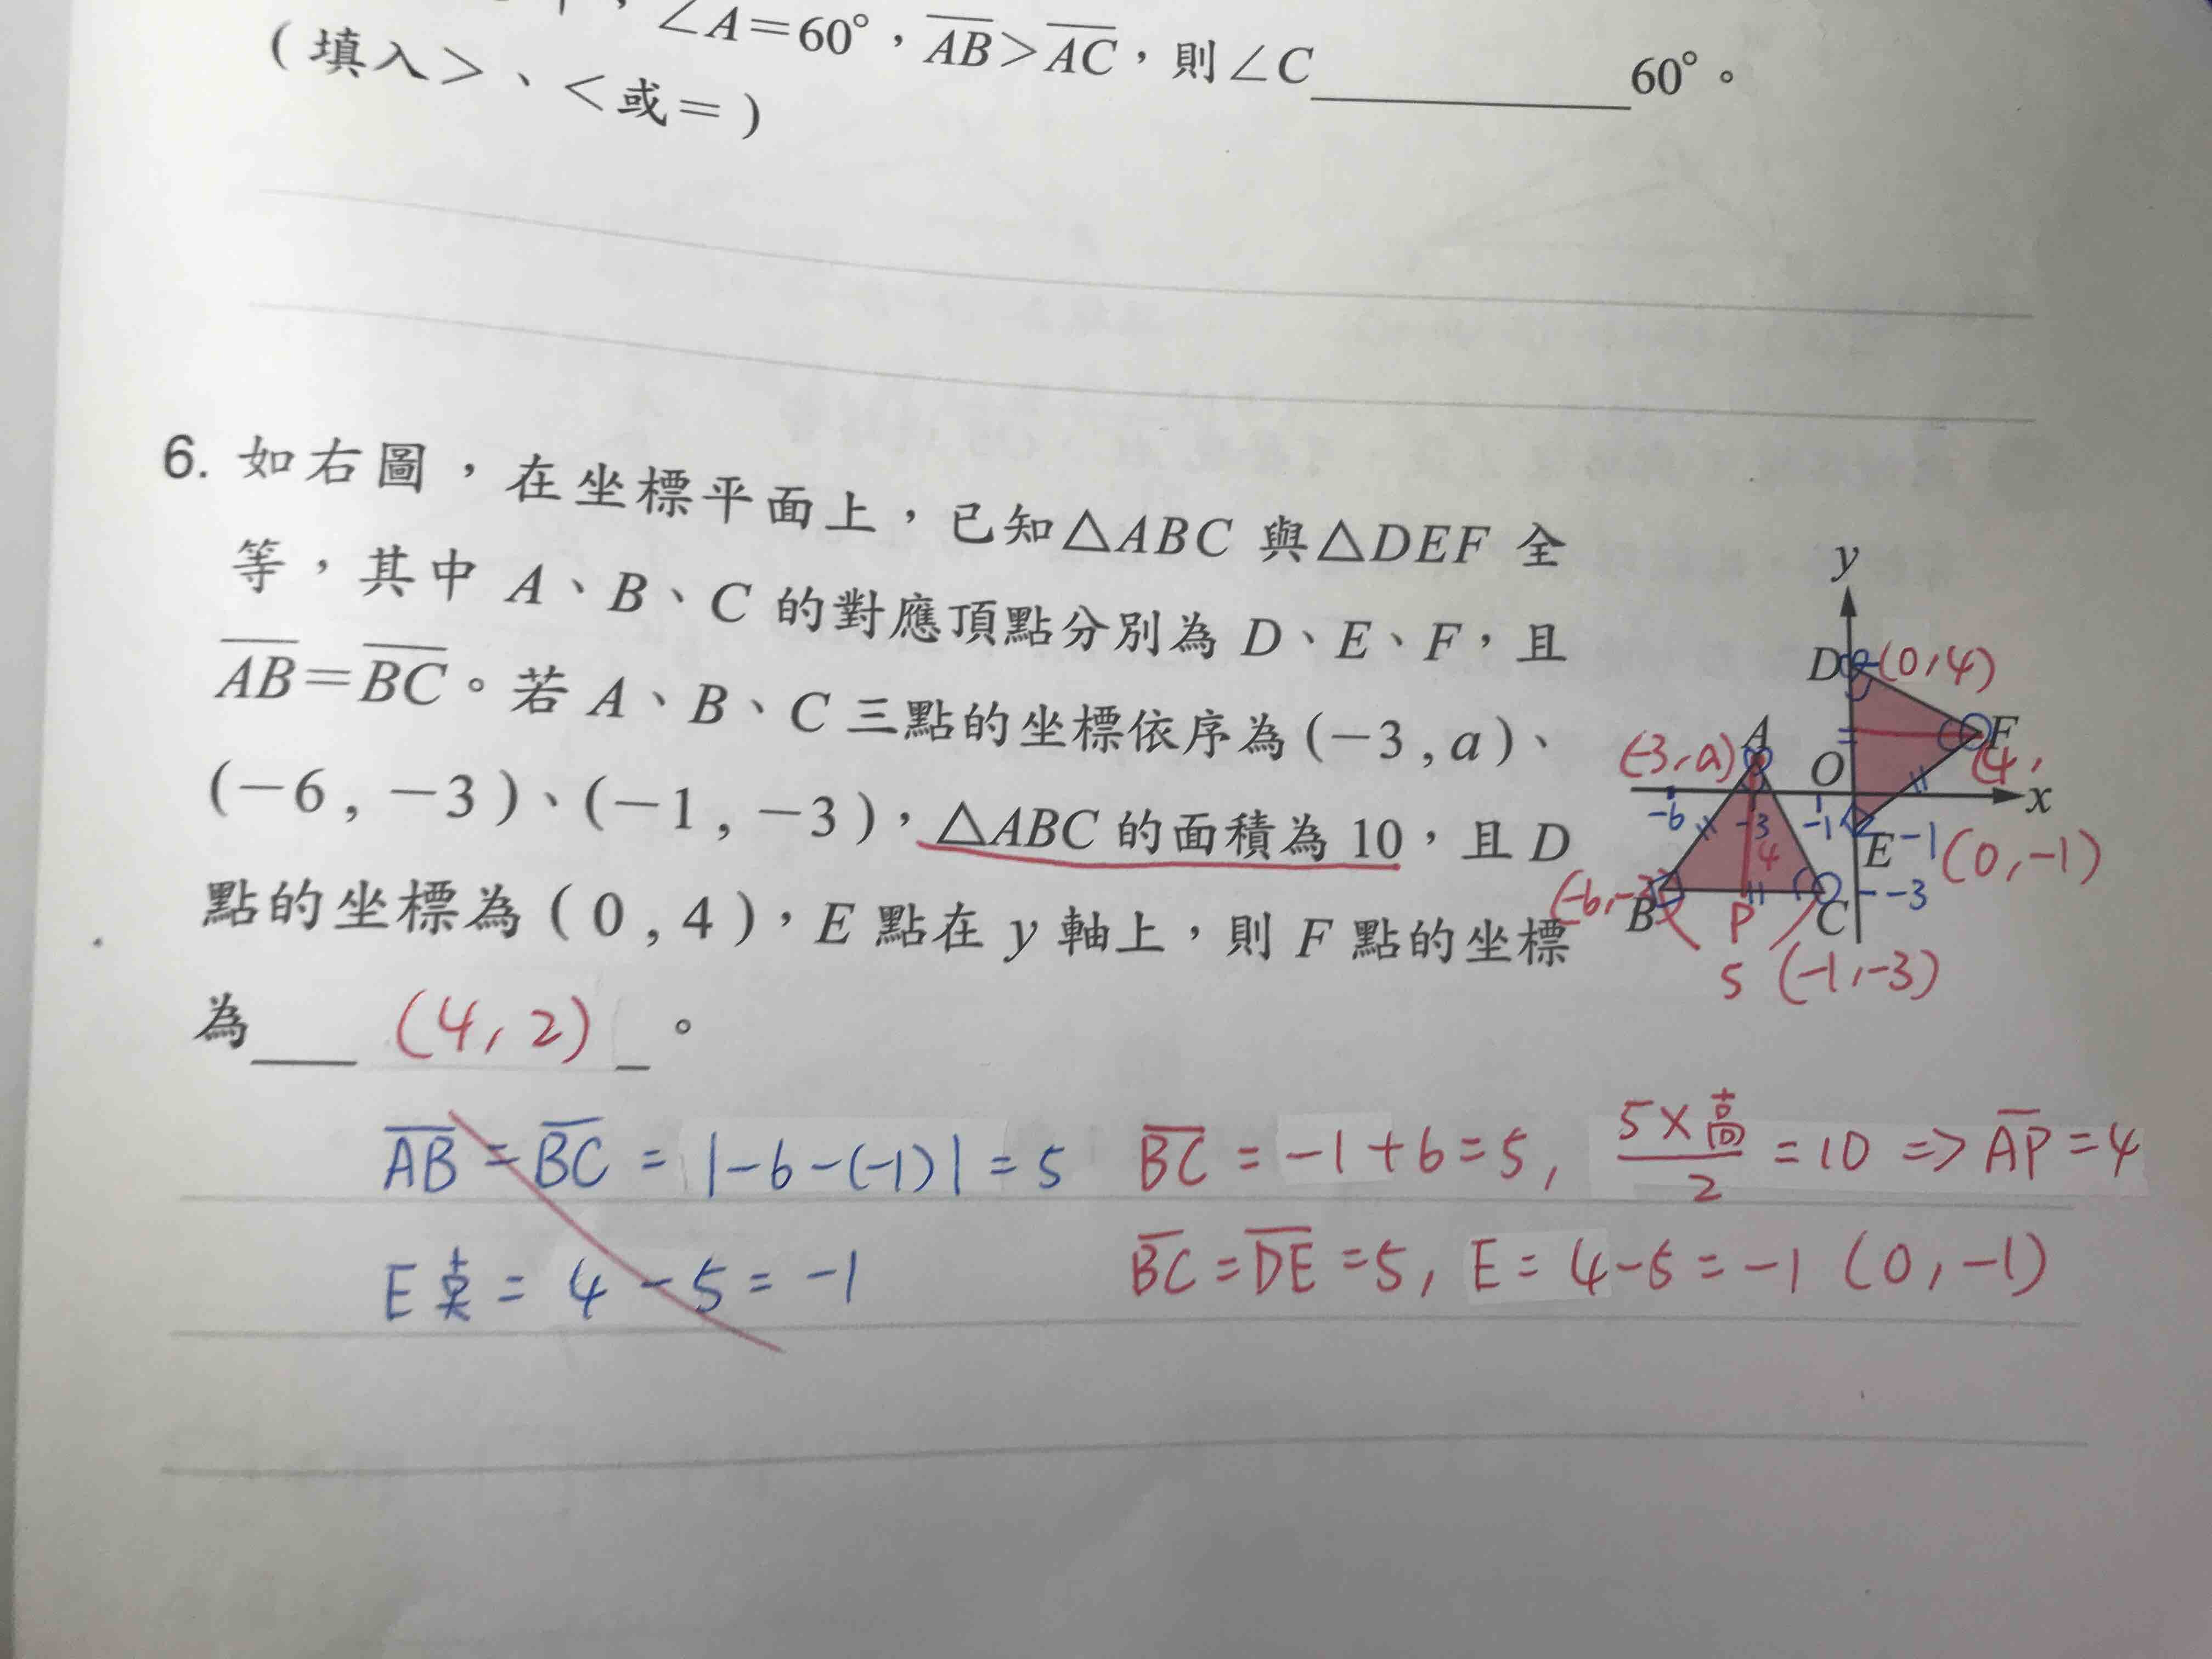 ∠A=60°，AB>AC，則∠C________60°。
(填入>、<或=)
6. 如右圖，在坐標平面上，已知△ABC 與△DEF 全
等，其中 A、B、C 的對應頂點分別為 D、E、F，且
AB=BC。若 A、B、C 三點的坐標依序為(-3,a)、
(-6,-3)、(-1,-3)，△ABC 的面積為 10，且 D
點的坐標為(0,4)，E 點在 y 軸上，則 F 點的坐標
為____(4,2)_。
y
D (0,4)
A F
(-3,a) O (4,
x
-6 -3 -1
4 E -1 (0,-1)
(-6,-3) -3
B P C
5 (-1,-3)
AB=BC=|-6-(-1)|=5
E点=4-5=-1
BC=-1+6=5, 5×高/2=10⇒AP=4
BC=DE=5, E=4-5=-1 (0,-1)